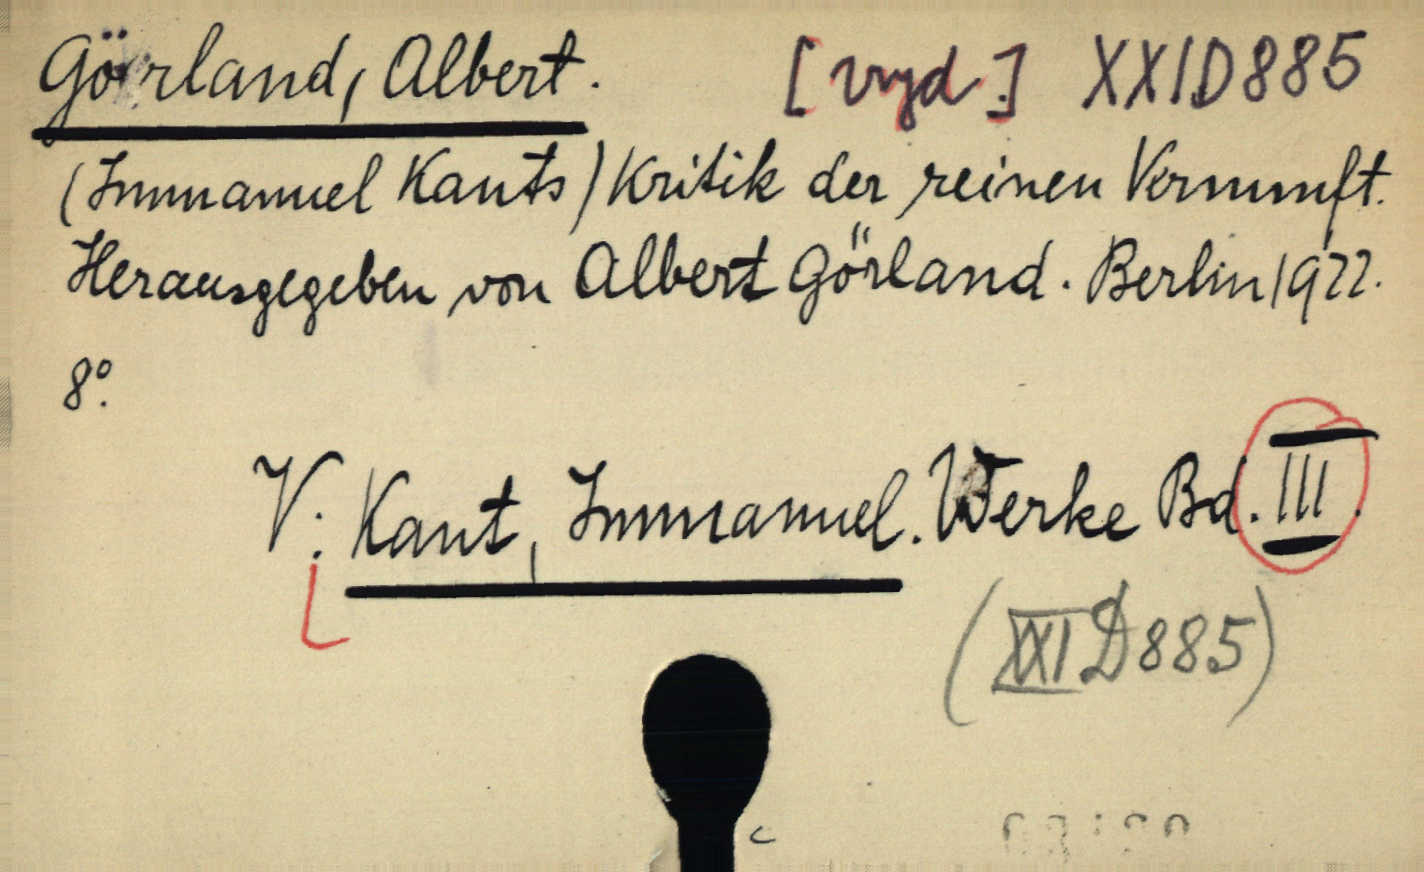 Görland, Albert. [vyd.] XXI D 885
(Immanuel Kants) Kritik der reinen Vernunft.
Herausgegeben von Albert Görland. Berlin 1922.
8°.
V: Kant, Immanuel. Werke Bd. III.
(XXI D 885)